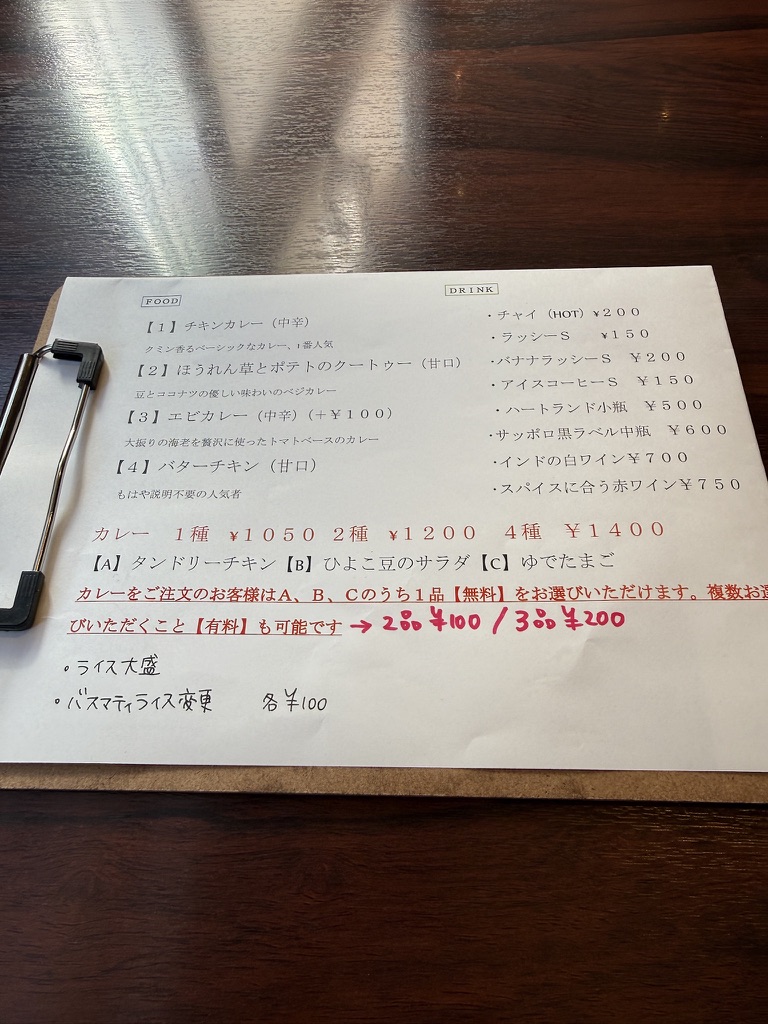 FOOD
【１】チキンカレー（中辛）
クミン香るベーシックなカレー、１番人気
【２】ほうれん草とポテトのクートゥー（甘口）
豆とココナツの優しい味わいのベジカレー
【３】エビカレー（中辛）（＋￥１００）
大振りの海老を贅沢に使ったトマトベースのカレー
【４】バターチキン（甘口）
もはや説明不要の人気者
DRINK
・チャイ（HOT）¥２００
・ラッシーＳ　¥１５０
・バナナラッシーＳ　￥２００
・アイスコーヒーＳ　￥１５０
・ハートランド小瓶　￥５００
・サッポロ黒ラベル中瓶　￥６００
・インドの白ワイン￥７００
・スパイスに合う赤ワイン￥７５０
カレー　１種　¥１０５０　２種　¥１２００　４種　￥１４００
【A】タンドリーチキン【B】ひよこ豆のサラダ【C】ゆでたまご
カレーをご注文のお客様はＡ、Ｂ、Ｃのうち１品【無料】をお選びいただけます。複数お選
びいただくこと【有料】も可能です→2品¥100 / 3品¥200
・ライス大盛
・バスマティライス変更　各¥100